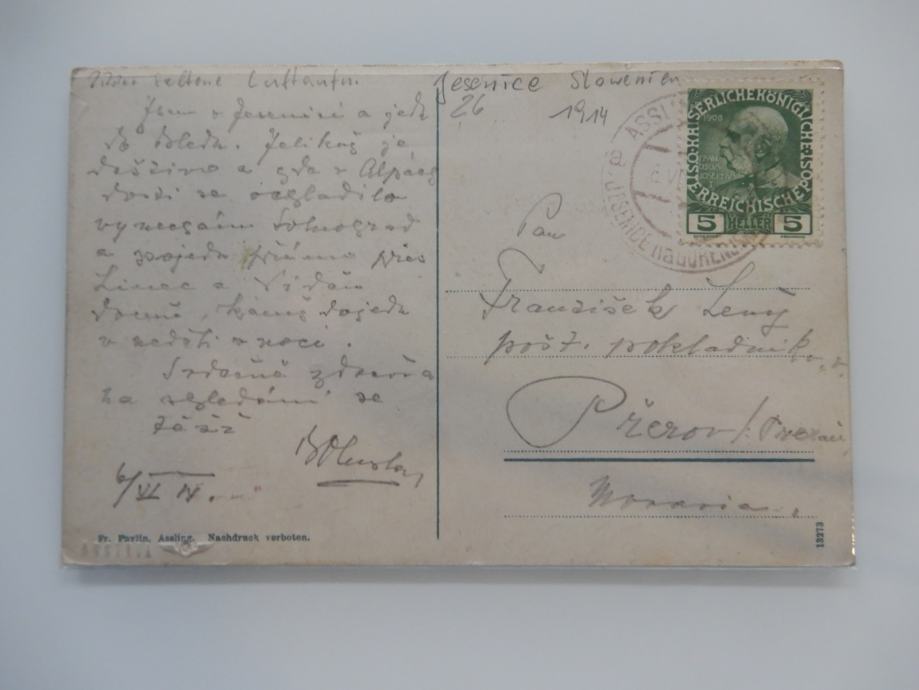 seltene Luftaufn.
Jesenice Slowenien
26 1914
Jsem v Jesenici a jedu
do Bledu. Jelikož je
deštivo a zda v Alpách
dosti se ochladilo
vynechám
a pojedu přímo přes
Linec a Vídeň
domů, kamž dojedu
v neděli v noci.
Srdečně zdraví a
na shledanou se
těší
Bohuslav
6/VI 14.
Fr. Pavlin, Assling. Nachdruck verboten.
ASSLING
JESENICE na GOREN
KAISERLICHE KÖNIGLICHE ÖSTERREICHISCHE POST
1908
5 HELLER 5
Pan
František Lený
pošt. pokladník
Přerov / Prerau
Moravia.
13273